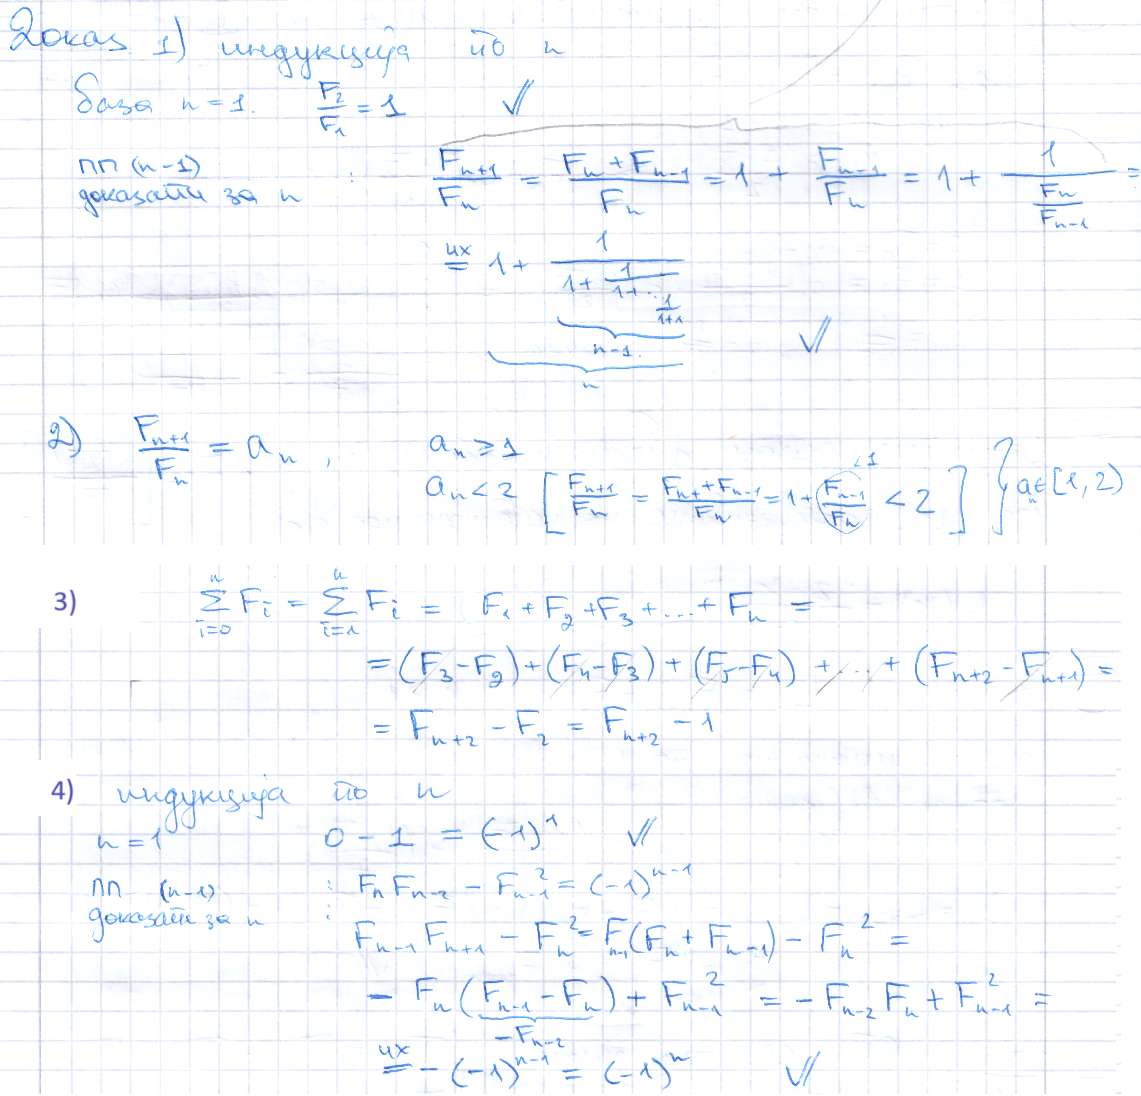 Доказ 1) индукција по n
база n = 1. F_2/F_1 = 1 ✓
ПП (n-1) : F_{n+1}/F_n = (F_n + F_{n-1})/F_n = 1 + F_{n-1}/F_n = 1 + 1/(F_n/F_{n-1}) =
доказати за n
их = 1 + 1/(1 + 1/(1 + ... 1/(1+1))) ✓
n-1.
n
2) F_{n+1}/F_n = a_n , a_n ≥ 1
a_n < 2 [ F_{n+1}/F_n = (F_n + F_{n-1})/F_n = 1 + F_{n-1}/F_n < 2 ] } a_n ∈ [1, 2)
< 1
3) ∑_{i=0}^{n} F_i = ∑_{i=1}^{n} F_i = F_1 + F_2 + F_3 + ... + F_n =
= (F_3 - F_2) + (F_4 - F_3) + (F_5 - F_4) + ... + (F_{n+2} - F_{n+1}) =
= F_{n+2} - F_2 = F_{n+2} - 1
4) индукција по n
n = 1 0 - 1 = (-1)^1 ✓
ПП (n-1) : F_n F_{n-2} - F_{n-1}^2 = (-1)^{n-1}
доказати за n : F_{n-1} F_{n+1} - F_n^2 = F_{n-1}(F_n + F_{n-1}) - F_n^2 =
- F_n (F_{n-1} - F_n) + F_{n-1}^2 = - F_{n-2} F_n + F_{n-1}^2 =
-F_{n-2}
их = - (-1)^{n-1} = (-1)^n ✓